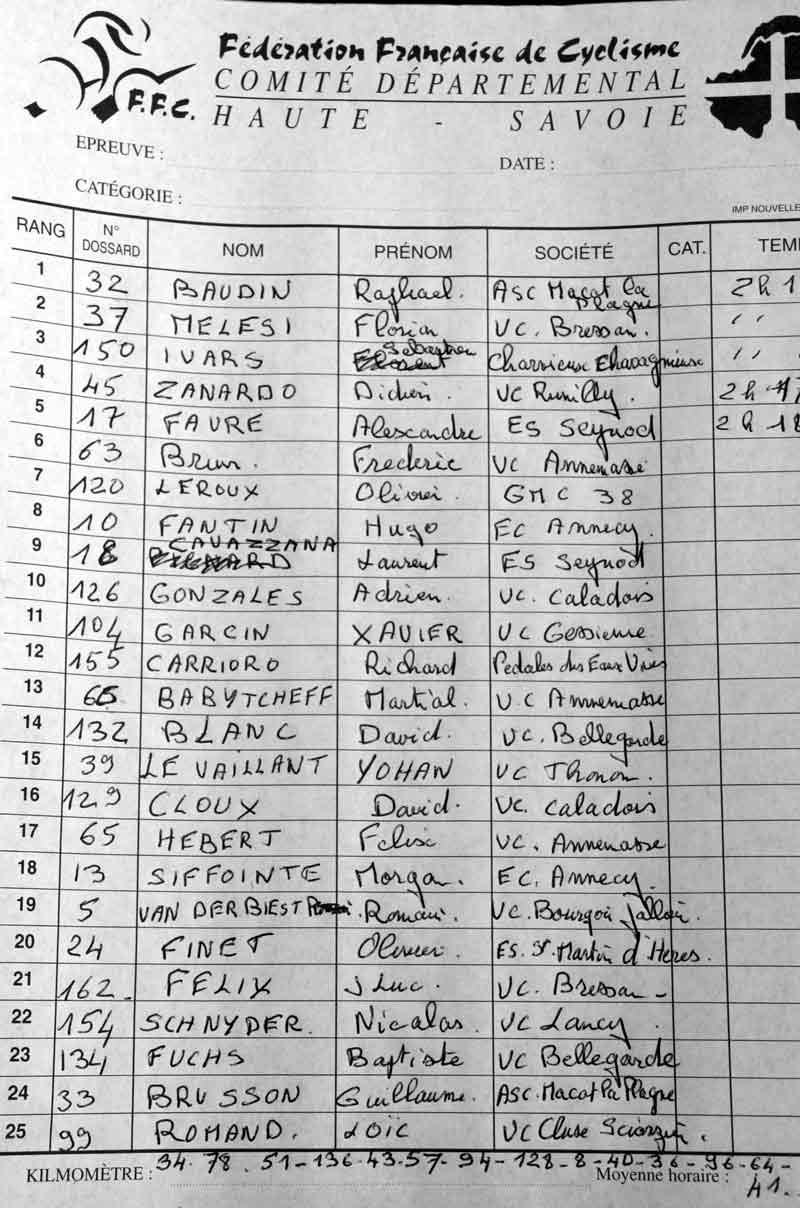 Fédération Française de Cyclisme
F.F.C. COMITÉ DÉPARTEMENTAL
HAUTE - SAVOIE
EPREUVE : DATE :
CATÉGORIE :
IMP NOUVELLE
RANG N° DOSSARD NOM PRÉNOM SOCIÉTÉ CAT. TEMP
1 32 BAUDIN Raphael. ASC Macot la Plagne 2h 1
2 37 MELESI Florian VC. Bressan. ''
3 150 IVARS Sebastien Charvieux Chavagnieux ''
4 45 ZANARDO Didier. VC Rumilly. 2h 17
5 17 FAURE Alexandre ES Seynod 2h 18
6 63 Brun. Frederic VC Annemasse
7 120 LEROUX Olivier. GMC 38
8 10 FANTIN Hugo EC Annecy.
9 18 CAVAZZANA Laurent ES Seynod
10 126 GONZALES Adrien. VC. Caladois
11 104 GARCIN XAVIER VC Gessienne
12 155 CARRIORO Richard Pedales des Eaux Vives
13 66 BABYTCHEFF Martial. V.C Annemasse
14 132 BLANC David. VC. Bellegarde
15 39 LE VAILLANT YOHAN VC Thonon.
16 129 CLOUX David. VC. Caladois
17 65 HEBERT Felix VC. Annemasse
18 13 SIFFOINTE Morgan. EC. Annecy.
19 5 VAN DER BIEST Romain. VC. Bourgoin Jallieu.
20 24 FINET Olivier. ES. St Martin d'Heres.
21 162. FELIX J Luc. VC. Bressan -
22 154 SCHNYDER. Nicolas. VC Lancy.
23 134 FUCHS Baptiste VC Bellegarde
24 33 BRUSSON Guillaume. ASC. Macot la Plagne
25 99 ROMAND. LOÏC VC Cluse Scionzier.
34. 78. 51-136-43-57-94-128-8-40-36-96-64-
KILMOMÈTRE : Moyenne horaire : 41.